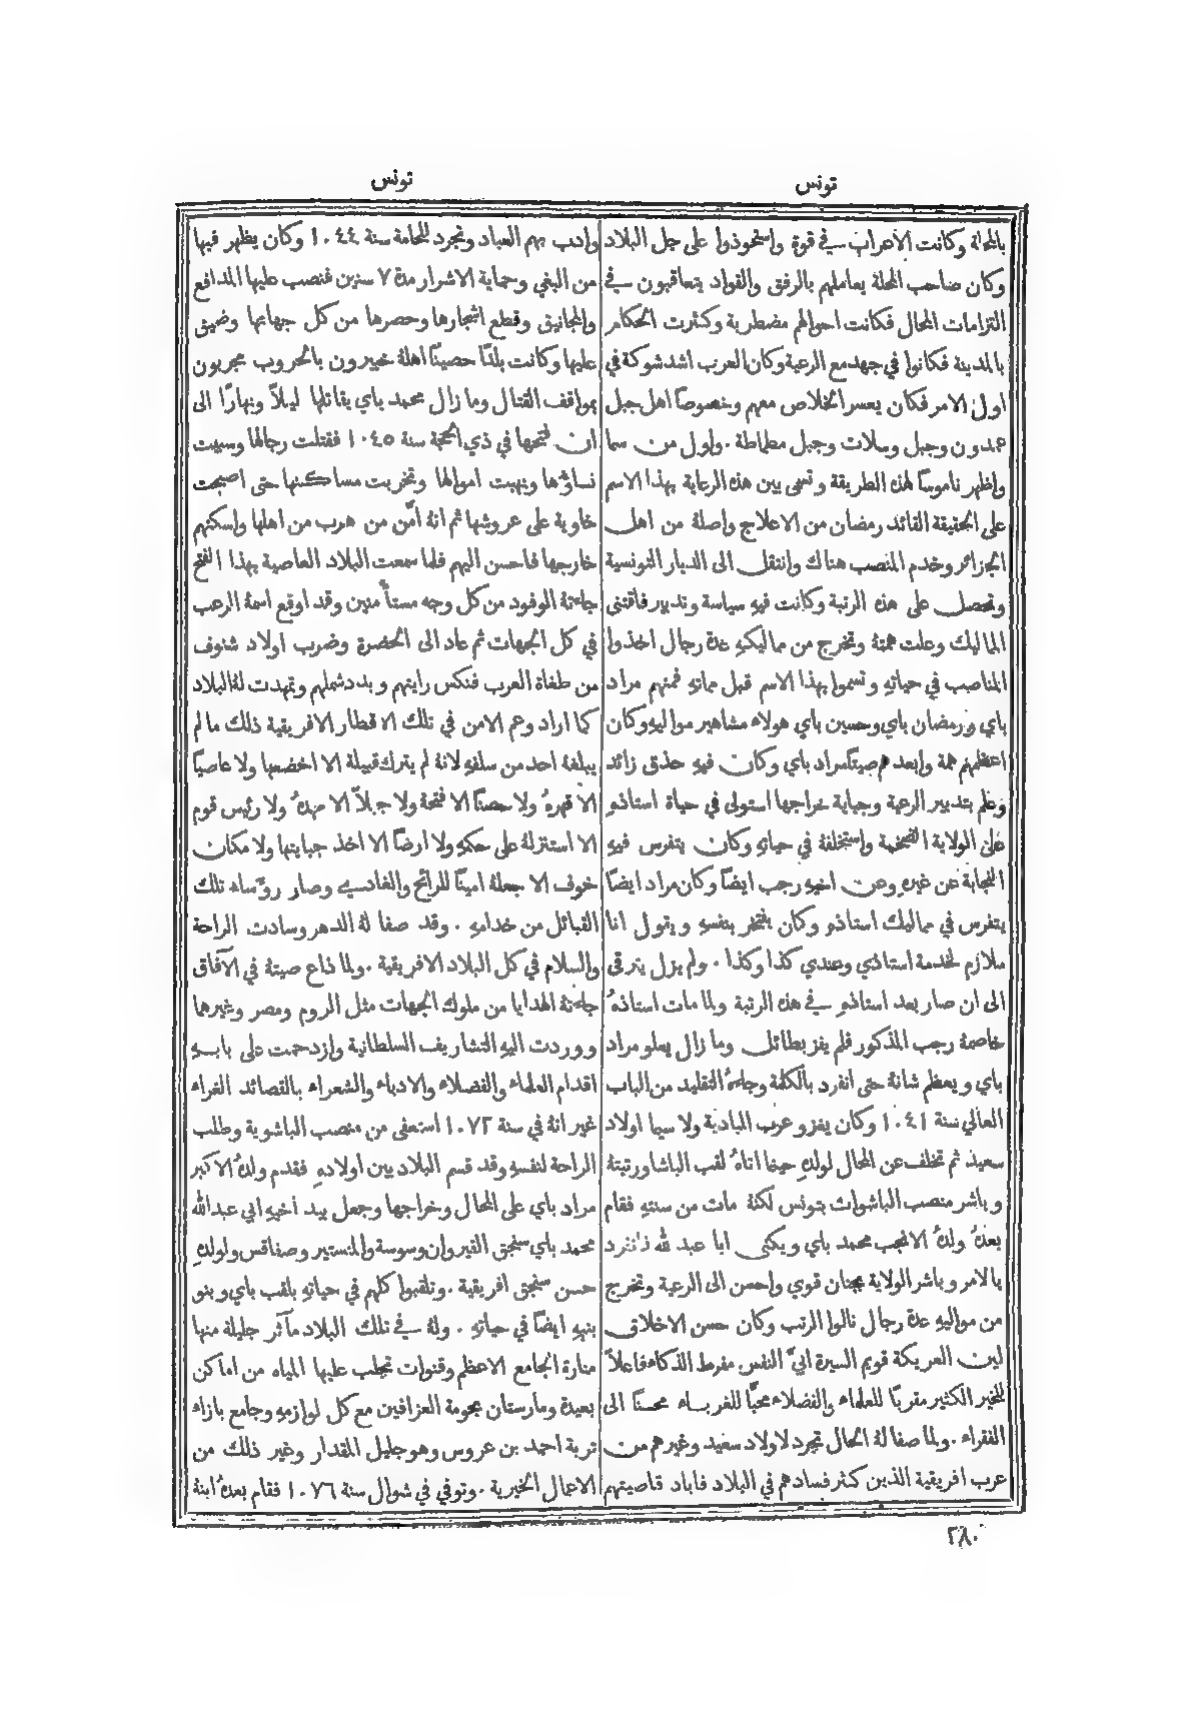 تونس
بالمحلة وكانت الأعراب في قوة واستحوذوا على جل البلاد
وكان صاحب المحلة يعاملهم بالرفق والقواد يتعاقبون في
التزامات المحال فكانت احوالهم مضطربة وكثرت الحكام
بالمدينة فكانوا في جهد مع الرعية وكان العرب اشد شوكة في
اول الامر فكان يعسر الخلاص معهم وخصوصاً اهل جبل
عمدون وجبل وسلات وجبل مطماطة . واول من سما
واظهر ناموساً لهذه الطريقة وتسمى بين هذه الرعاية بهذا الاسم
على الحقيقة القائد رمضان من الاعلاج واصلهُ من اهل
الجزائر وخدم المنصب هناك وانتقل الى الديار التونسية
وتحصل على هذه الرتبة وكانت فيهِ سياسة وتدبير فاقتنى
المماليك وعلت همتهُ وتخرج من مماليكهِ عدة رجال اخذوا
المناصب في حياتهِ وتسموا بهذا الاسم قبل مماتهِ فمنهم مراد
باي ورمضان باي وحسين باي هولاء مشاهير مواليهِ وكان
اعظمهم همة وابعدهم صيتاً مراد باي وكان فيهِ حذق زائد
وعلم بتدبير الرعية وجباية خراجها استولى في حياة استاذهِ
على الولاية الضخمة واستخلفهُ في حياتهِ وكان يتفرس فيهِ
النجابة عن غيرهِ وعن اخيهِ رجب ايضاً وكان مراد ايضاً
يتفرس في مماليك استاذهِ وكان يفتخر بنفسهِ ويقول انا
ملازم لخدمة استاذي وعندي كذا وكذا . ولم يزل يترقى
الى ان صار بعد استاذهِ في هذه الرتبة ولما مات استاذهُ
خاصمهُ رجب المذكور فلم يفز بطائل وما زال يعلو مراد
باي ويعظم شانهُ حتى انفرد بالكلمة وجاءهُ التقليد من الباب
العالي سنة ١٠٤١ وكان يغزو عرب البادية ولا سيما اولاد
سعيد ثم تخلف عن المحال لولدهِ حينما اتاهُ لقب الباشا ورتبتهُ
وباشر منصب الباشوات بتونس لكنهُ مات من سنتهِ فقام
بعدهُ ولدهُ الانجب محمد باي ويكنى ابا عبد لله فانفرد
بالامر وباشر الولاية بجنان قوي واحسن الى الرعية وتخرج
من مواليهِ عدة رجال نالوا الرتب وكان حسن الاخلاق
لين العريكة قويم السيرة ابيّ النفس مفرط الذكاء فاعلاً
للخير الكثير مقرباً للعلماء والفضلاء محباً للغرباء محسناً الى
الفقراء . ولما صفا لهُ الحال تجرد لاولاد سعيد وغيرهم من
عرب افريقية الذين كثر فسادهم في البلاد فاباد قاصيتهم
تونس
وادب بهم العباد وتجرد للحامة سنة ١٠٤٤ وكان يظهر فيها
من البغي وحماية الاشرار مدة ٧ سنين فنصب عليها المدافع
والمجانيق وقطع اشجارها وحصرها من كل جهاتها وضيق
عليها وكانت بلداً حصيناً اهلهُ خبيرون بالحروب مجربون
بمواقف القتال وما زال محمد باي يقاتلها ليلاً ونهاراً الى
ان فتحها في ذي الحجة سنة ١٠٤٥ فقتلت رجالها وسبيت
نساؤها ونهبت اموالها وتخربت مساكنها حتى اصبحت
خاوية على عروشها ثم انهُ امّن من هرب من اهلها واسكنهم
خارجها فاحسن اليهم فلما سمعت البلاد العاصية بهذا الفتح
جاءتهُ الوفود من كل وجه مستأمنين وقد اوقع اسمهُ الرعب
في كل الجهات ثم عاد الى الحضرة وضرب اولاد شنوف
من طغاة العرب فنكس رايتهم وبدد شملهم وتمهدت لهُ البلاد
كما اراد وعم الامن في تلك الاقطار الافريقية ذلك ما لم
يبلغهُ احد من سلفهِ لانهُ لم يترك قبيلة الا اخضعها ولا عاصياً
الا قهرهُ ولا حصناً الا فتحهُ ولا جبلاً الا مهدهُ ولا رئيس قوم
الا استنزلهُ على حكمهِ ولا ارضاً الا اخذ جبايتها ولا مكان
خوف الا جعلهُ اميناً للرائح والغادي وصار رؤساء تلك
القبائل من خدامهِ . وقد صفا لهُ الدهر وسادت الراحة
والسلام في كل البلاد الافريقية . ولما ذاع صيتهُ في الآفاق
جاءتهُ الهدايا من ملوك الجهات مثل الروم ومصر وغيرهما
ووردت اليهِ التشاريف السلطانية وازدحمت على بابهِ
اقدام العلماء والفضلاء والادباء والشعراء بالقصائد الغراء
غير انهُ في سنة ١٠٧٢ استعفى من منصب الباشوية وطلب
الراحة لنفسهِ وقد قسم البلاد بين اولادهِ فقدم ولدهُ الاكبر
مراد باي على المحال وخراجها وجعل بيد اخيهِ ابي عبد الله
محمد باي سنجق القيروان وسوسة والمنستير وصفاقس ولولدهِ
حسن سنجق افريقية . وتلقبوا كلهم في حياتهِ بلقب باي وبنو
بنيهِ ايضاً في حياتهِ . ولهُ في تلك البلاد مآثر جليلة منها
منارة الجامع الاعظم وقنوات تجلب عليها المياه من اماكن
بعيدة ومارستان بحومة العزافين مع كل لوازمهِ وجامع بازاء
تربة احمد بن عروس وهو جليل المقدار وغير ذلك من
الاعمال الخيرية . وتوفي في شوال سنة ١٠٧٦ فقام بعدهُ ابنهُ
٢٨٠